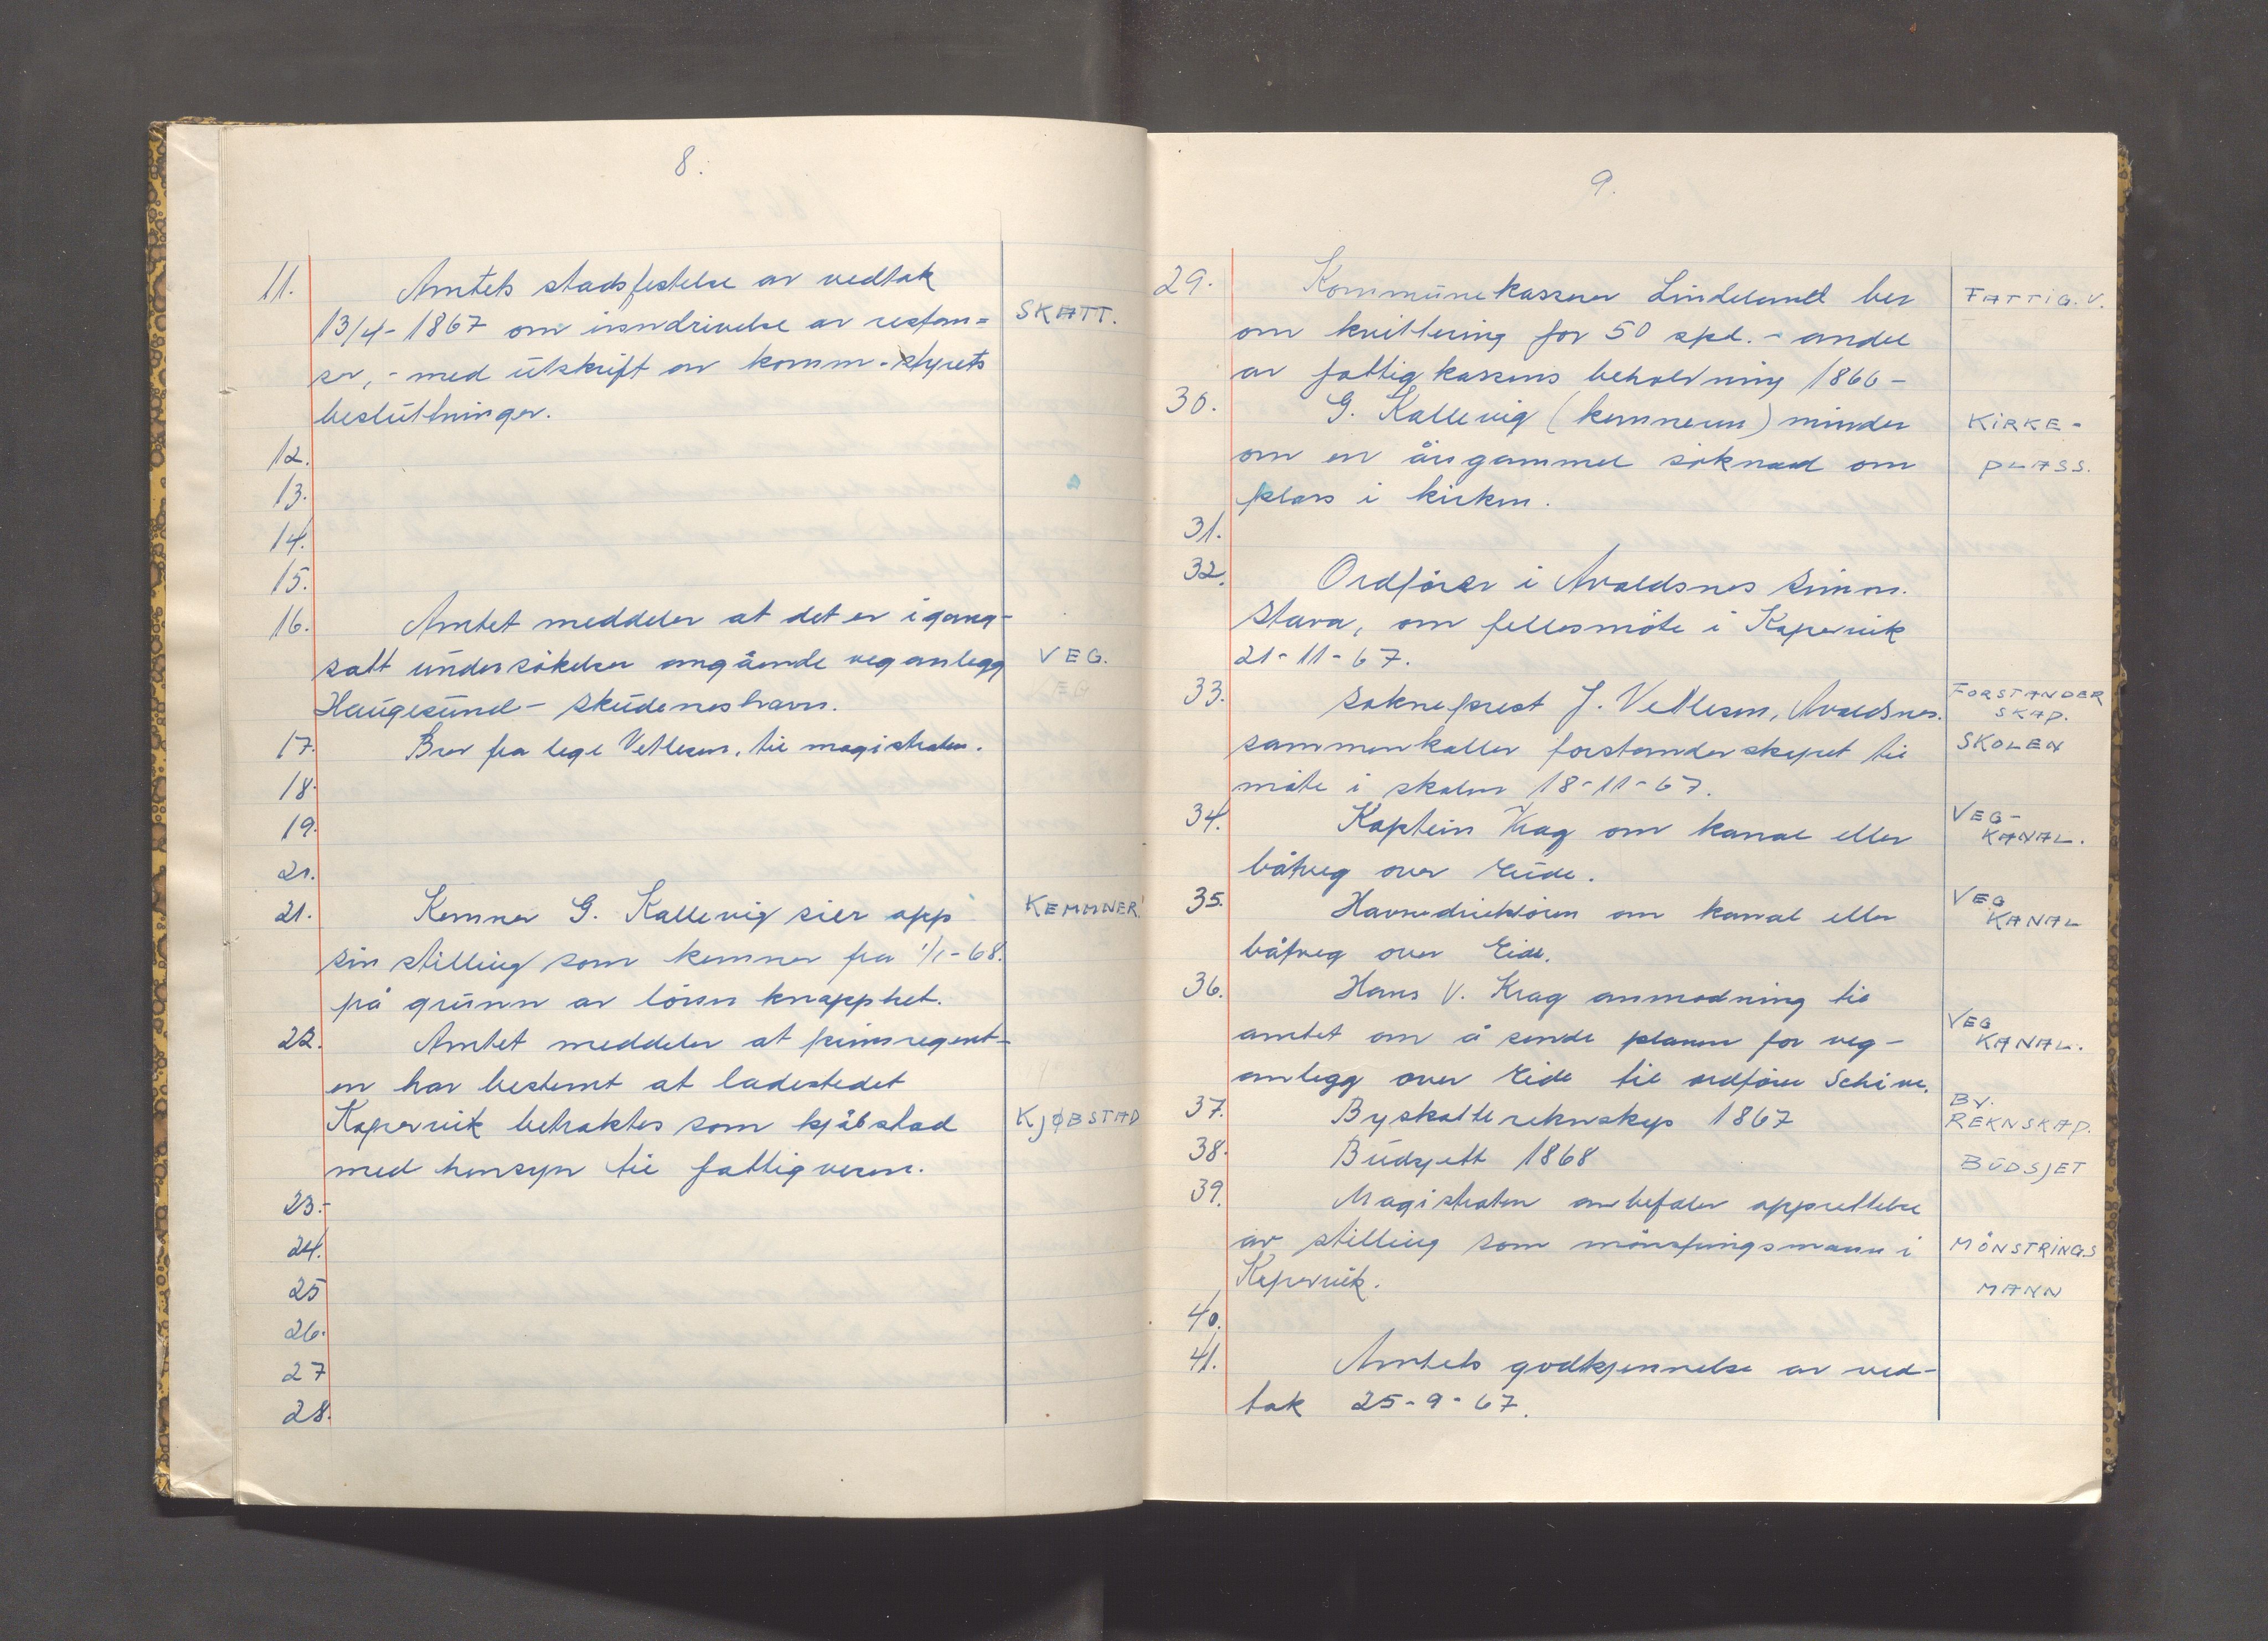 8.
11. Amtets stadsfestelse av vedtak
13/4-1867 om inndrivelse av restan= SKATT.
ser, - med utskrift av komm.styrets
besluttninger.
12.
13.
14.
15.
16. Amtet meddeler at det er igang-
satt undersökelser angående veganlegg VEG.
Haugesund - Skudeneshavn.
17. Brev fra lege Vetlesen, til magistraten.
18.
19.
20.
21. Kemner G. Kallevig sier opp KEMMNER.
sin stilling som kemner fra 1/1-68.
på grunn av lönns knapphet.
22. Amtet meddeler at prinsregent-
en har bestemt at ladestedet
Kopervik betraktes som kjöbstad KJØBSTAD
med hensyn til fattigvesen.
23.-
24.
25
26.
27
28.
9.
29. Kommunekasserer Lindeland ber FATTIG.V.
om kvittering for 50 spd. - andel
av fattigkassens beholdning 1866-
30. G. Kallevig (kemneren) minder KIRKE-
om en årsgammel söknad om PLASS.
plass i kirken.
31.
32. Ordförer i Avaldsnes Simon.
Stava, om fellesmöte i Kopervik
21-11-67.
33. Sokneprest J. Vetlesen, Avaldsnes. FORSTANDER
SKAP.
sammenkaller forstanderskapet til SKOLEN
möte i skolen 18-11-67.
34. Kaptein Krag om kanal eller VEG-
KANAL.
båtveg over Eide.
35. Havnedirektören om kanal eller VEG
KANAL
båtveg over Eide.
36. Hans V. Krag anmodning til
amtet om å sende planen for veg- VEG
KANAL.
anlegg over Eide til ordförer Schive.
37. Byskatterekneskap 1867 BY.
REKNSKAP.
38. Budsjett 1868 BUDSJET
39. Magistraten anbefaler opprettelse
av stilling som mönstringsmann i MÖNSTRINGS
Kopervik. MANN
40.
41. Amtets godkjennelse av ved-
tak 25-9-67.